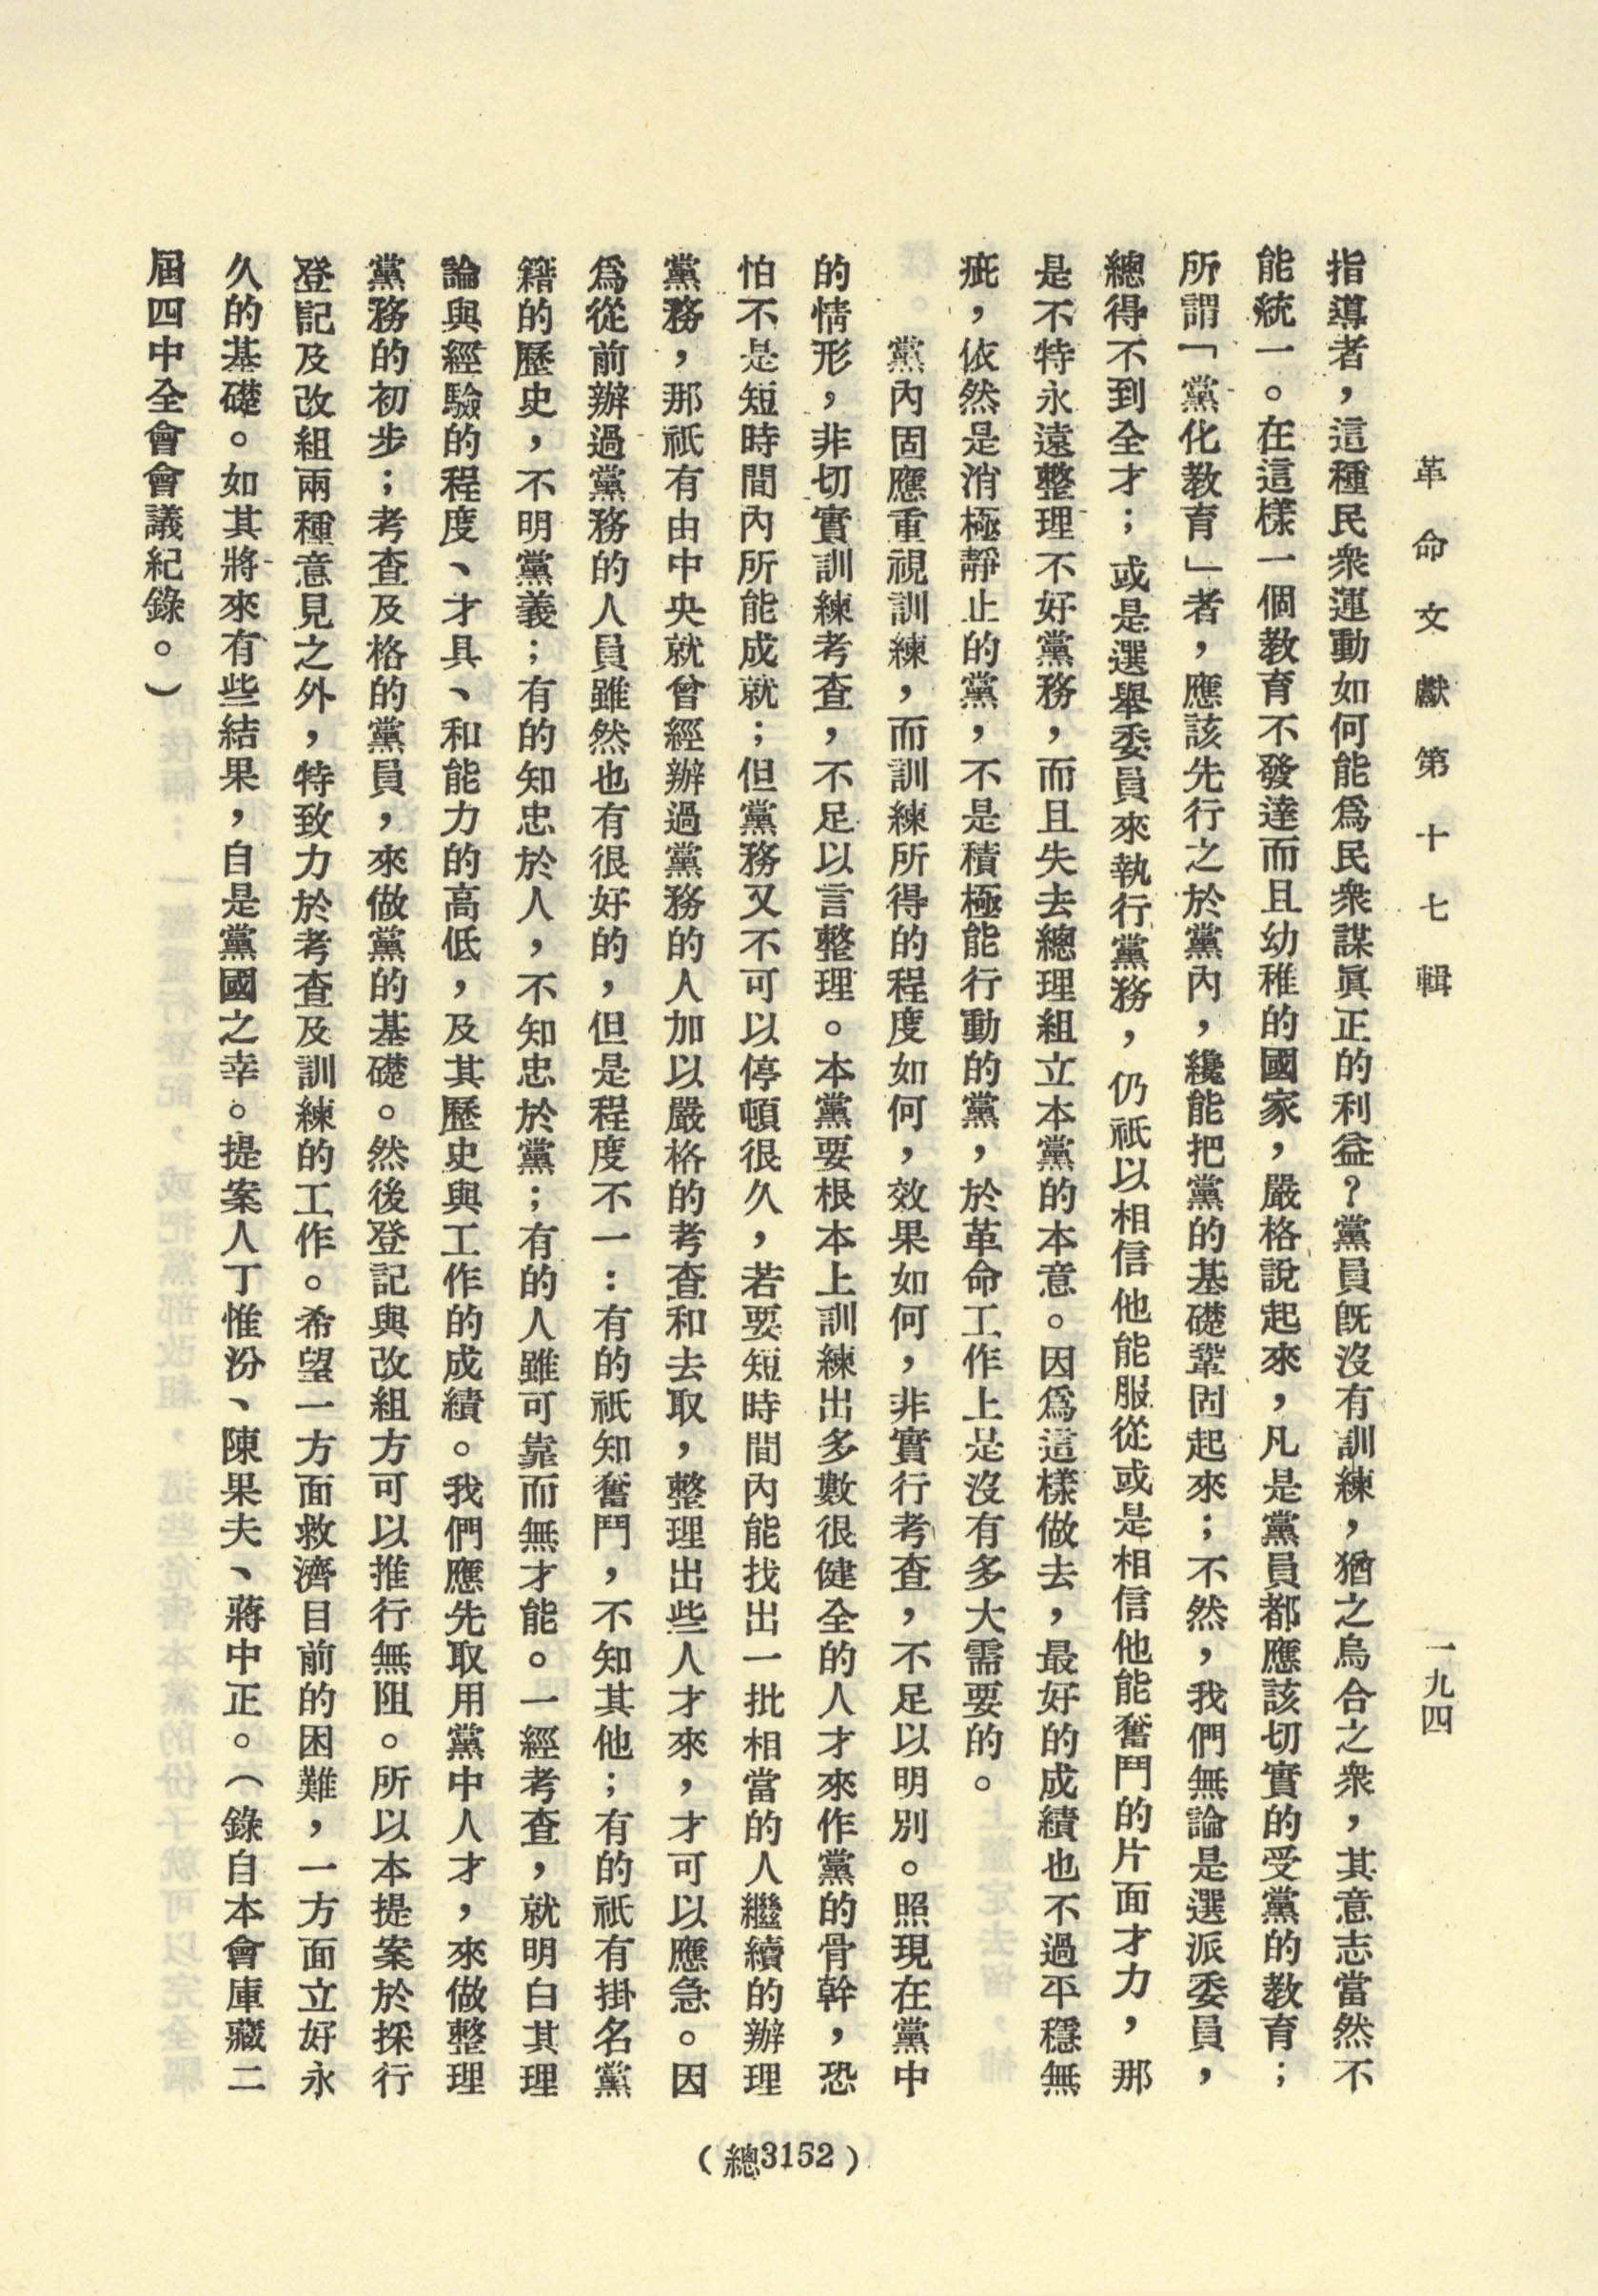 革命文獻第十七輯
一九四
指導者，這種民衆運動如何能爲民衆謀眞正的利益？黨員旣沒有訓練，猶之烏合之衆，其意志當然不
能統一。在這樣一個教育不發達而且幼稚的國家，嚴格說起來，凡是黨員都應該切實的受黨的教育；
所謂「黨化教育」者，應該先行之於黨內，纔能把黨的基礎鞏固起來；不然，我們無論是選派委員，
總得不到全才；或是選舉委員來執行黨務，仍祇以相信他能服從或是相信他能奮鬥的片面才力，那
是不特永遠整理不好黨務，而且失去總理組立本黨的本意。因爲這樣做去，最好的成績也不過平穩無
疵，依然是消極靜止的黨，不是積極能行動的黨，於革命工作上是沒有多大需要的。
黨內固應重視訓練，而訓練所得的程度如何，效果如何，非實行考查，不足以明別。照現在黨中
的情形，非切實訓練考查，不足以言整理。本黨要根本上訓練出多數很健全的人才來作黨的骨幹，恐
怕不是短時間內所能成就；但黨務又不可以停頓很久，若要短時間內能找出一批相當的人繼續的辦理
黨務，那祇有由中央就曾經辦過黨務的人加以嚴格的考查和去取，整理出些人才來，才可以應急。因
爲從前辦過黨務的人員雖然也有很好的，但是程度不一：有的祇知奮鬥，不知其他；有的祇有掛名黨
籍的歷史，不明黨義；有的知忠於人，不知忠於黨；有的人雖可靠而無才能。一經考查，就明白其理
論與經驗的程度、才具、和能力的高低，及其歷史與工作的成績。我們應先取用黨中人才，來做整理
黨務的初步；考查及格的黨員，來做黨的基礎。然後登記與改組方可以推行無阻。所以本提案於採行
登記及改組兩種意見之外，特致力於考查及訓練的工作。希望一方面救濟目前的困難，一方面立好永
久的基礎。如其將來有些結果，自是黨國之幸。提案人丁惟汾、陳果夫、蔣中正。（錄自本會庫藏二
屆四中全會會議紀錄。）
（總3152）